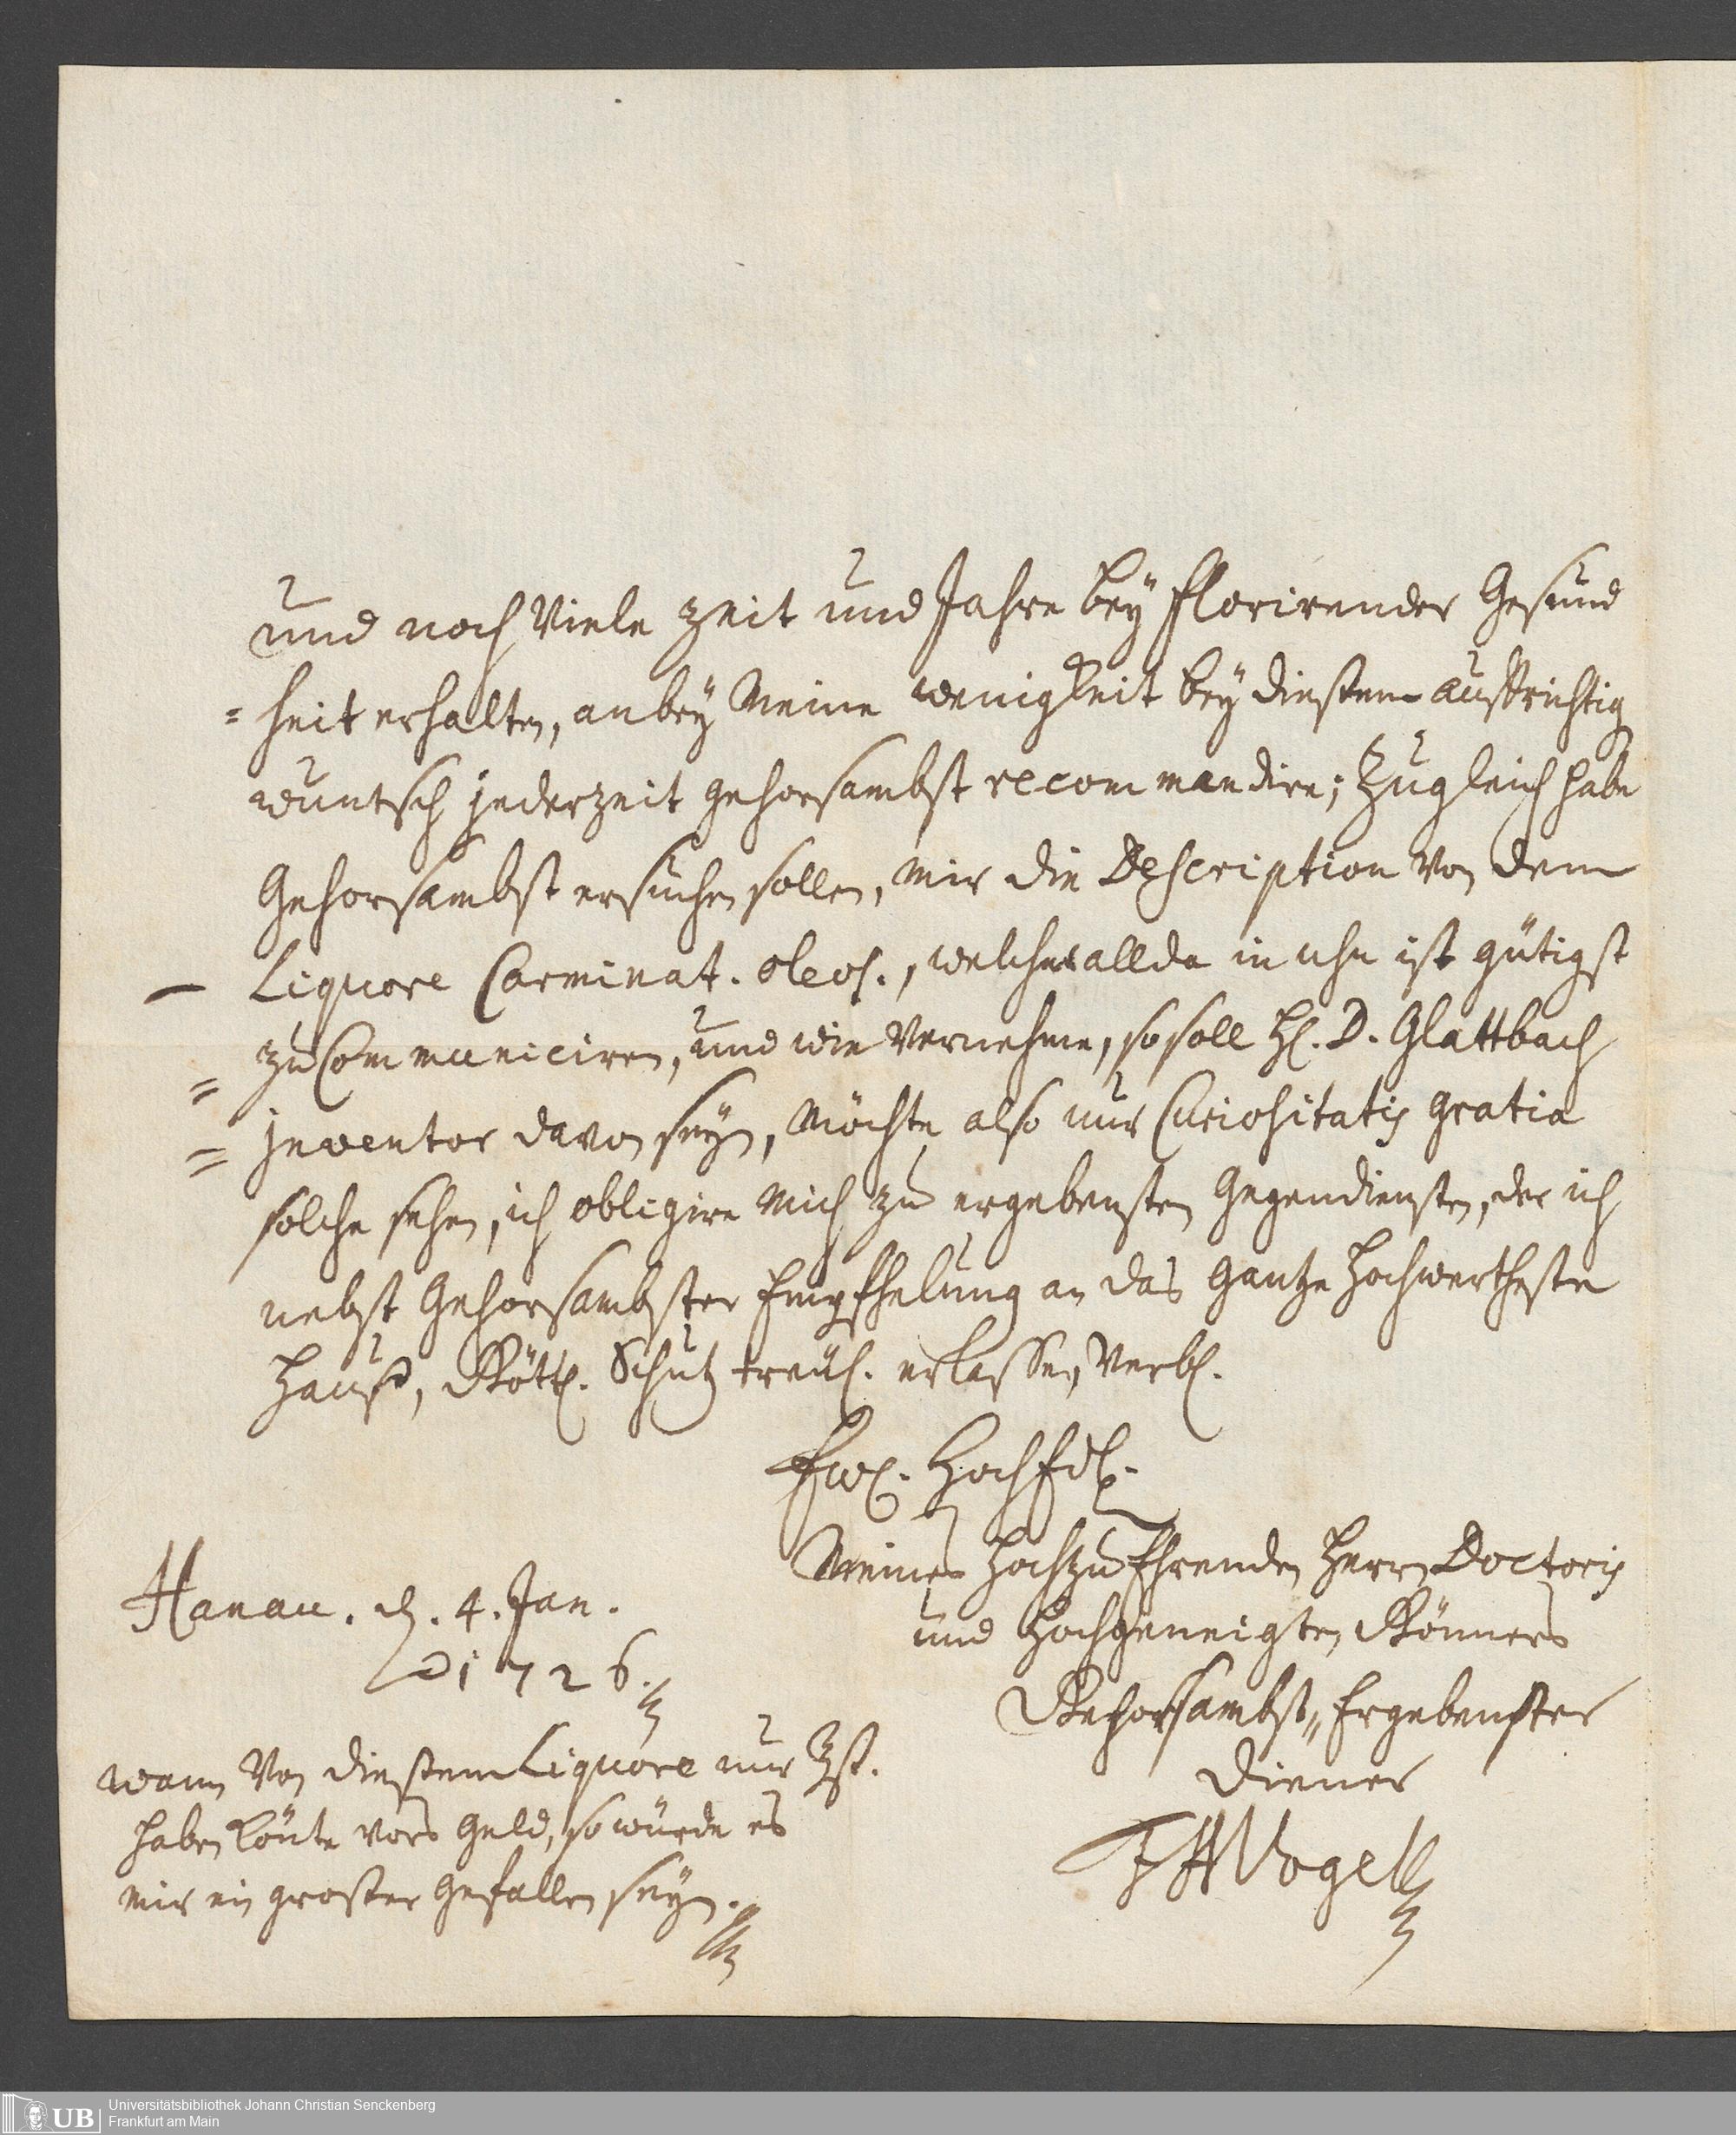 und noch Viele Zeit und Jahre bey florirender Gesund
= heit erhalten, anbey Meine wenigkeit bey diesem auffrichtig
wuntsch jederzeit gehorsambst recommandire; Zugleich habe
Gehorsambst ersuchen sollen, Mir die Description Von dem
Liquore Carminat. oleos., welcher allda in uhu ist gütigst
zu Communiciren, und wie Vernehme, so soll H. D. Glattbach
Inventor davon seyn, Möchte also nur Curiositatis gratia
solche sehen, ich obligire Mich zu ergebensten Gegendiensten, der ich
nebst Gehorsambster Empfhelung an das Gantze Hochwertheste
Hauß, Göttl. Schutz treul. erlassen, Verbl.
Ew. HochEdl.
Meines Hochzu Ehrenden Herrn Doctoris
und Hochgeneigten Gönners
Gehorsambst, Ergebenster
Diener
Vogel
Hanau. d. 4. Jan.
1726.
wann Von diesem Liquore nur
haben könte vors Geld, so würde es
mir ein groser Gefallen seyn.
Universitätsbibliothek Johann Christian Senckenberg
Frankfurt am Main
UB